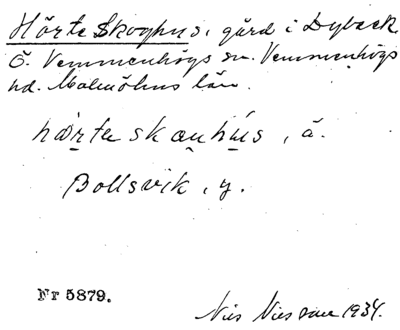 Hörte Skoghus, gård i Dybeck
Ö. Vemmenhögs sn. Vemmenhögs
hd. Malmöhus län.
hörte skauhús, ä.
Bollsvik, y.
Nr 5879.
Nils Nilsson 1934.